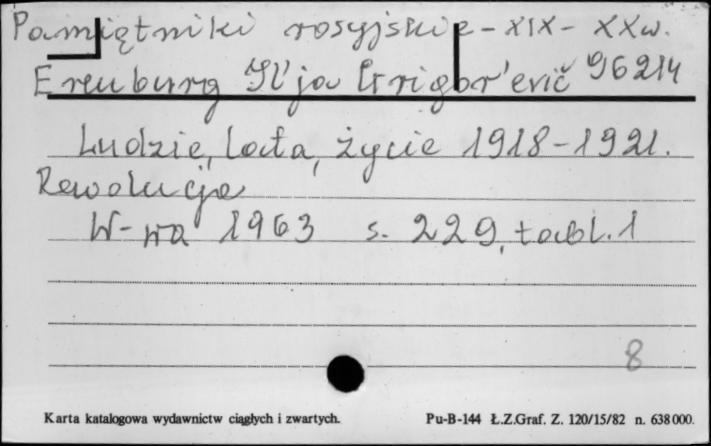 Pamiętniki rosyjskie - XIX - XX w.
Erenburg Il'ja Grigor'evič 96214
Ludzie, lata, życie 1918-1921.
Rewolucja
W-wa 1963 s. 229, tabl. 1
8
Karta katalogowa wydawnictw ciągłych i zwartych. Pu-B-144 Ł.Z.Graf. Z. 120/15/82 n. 638000.